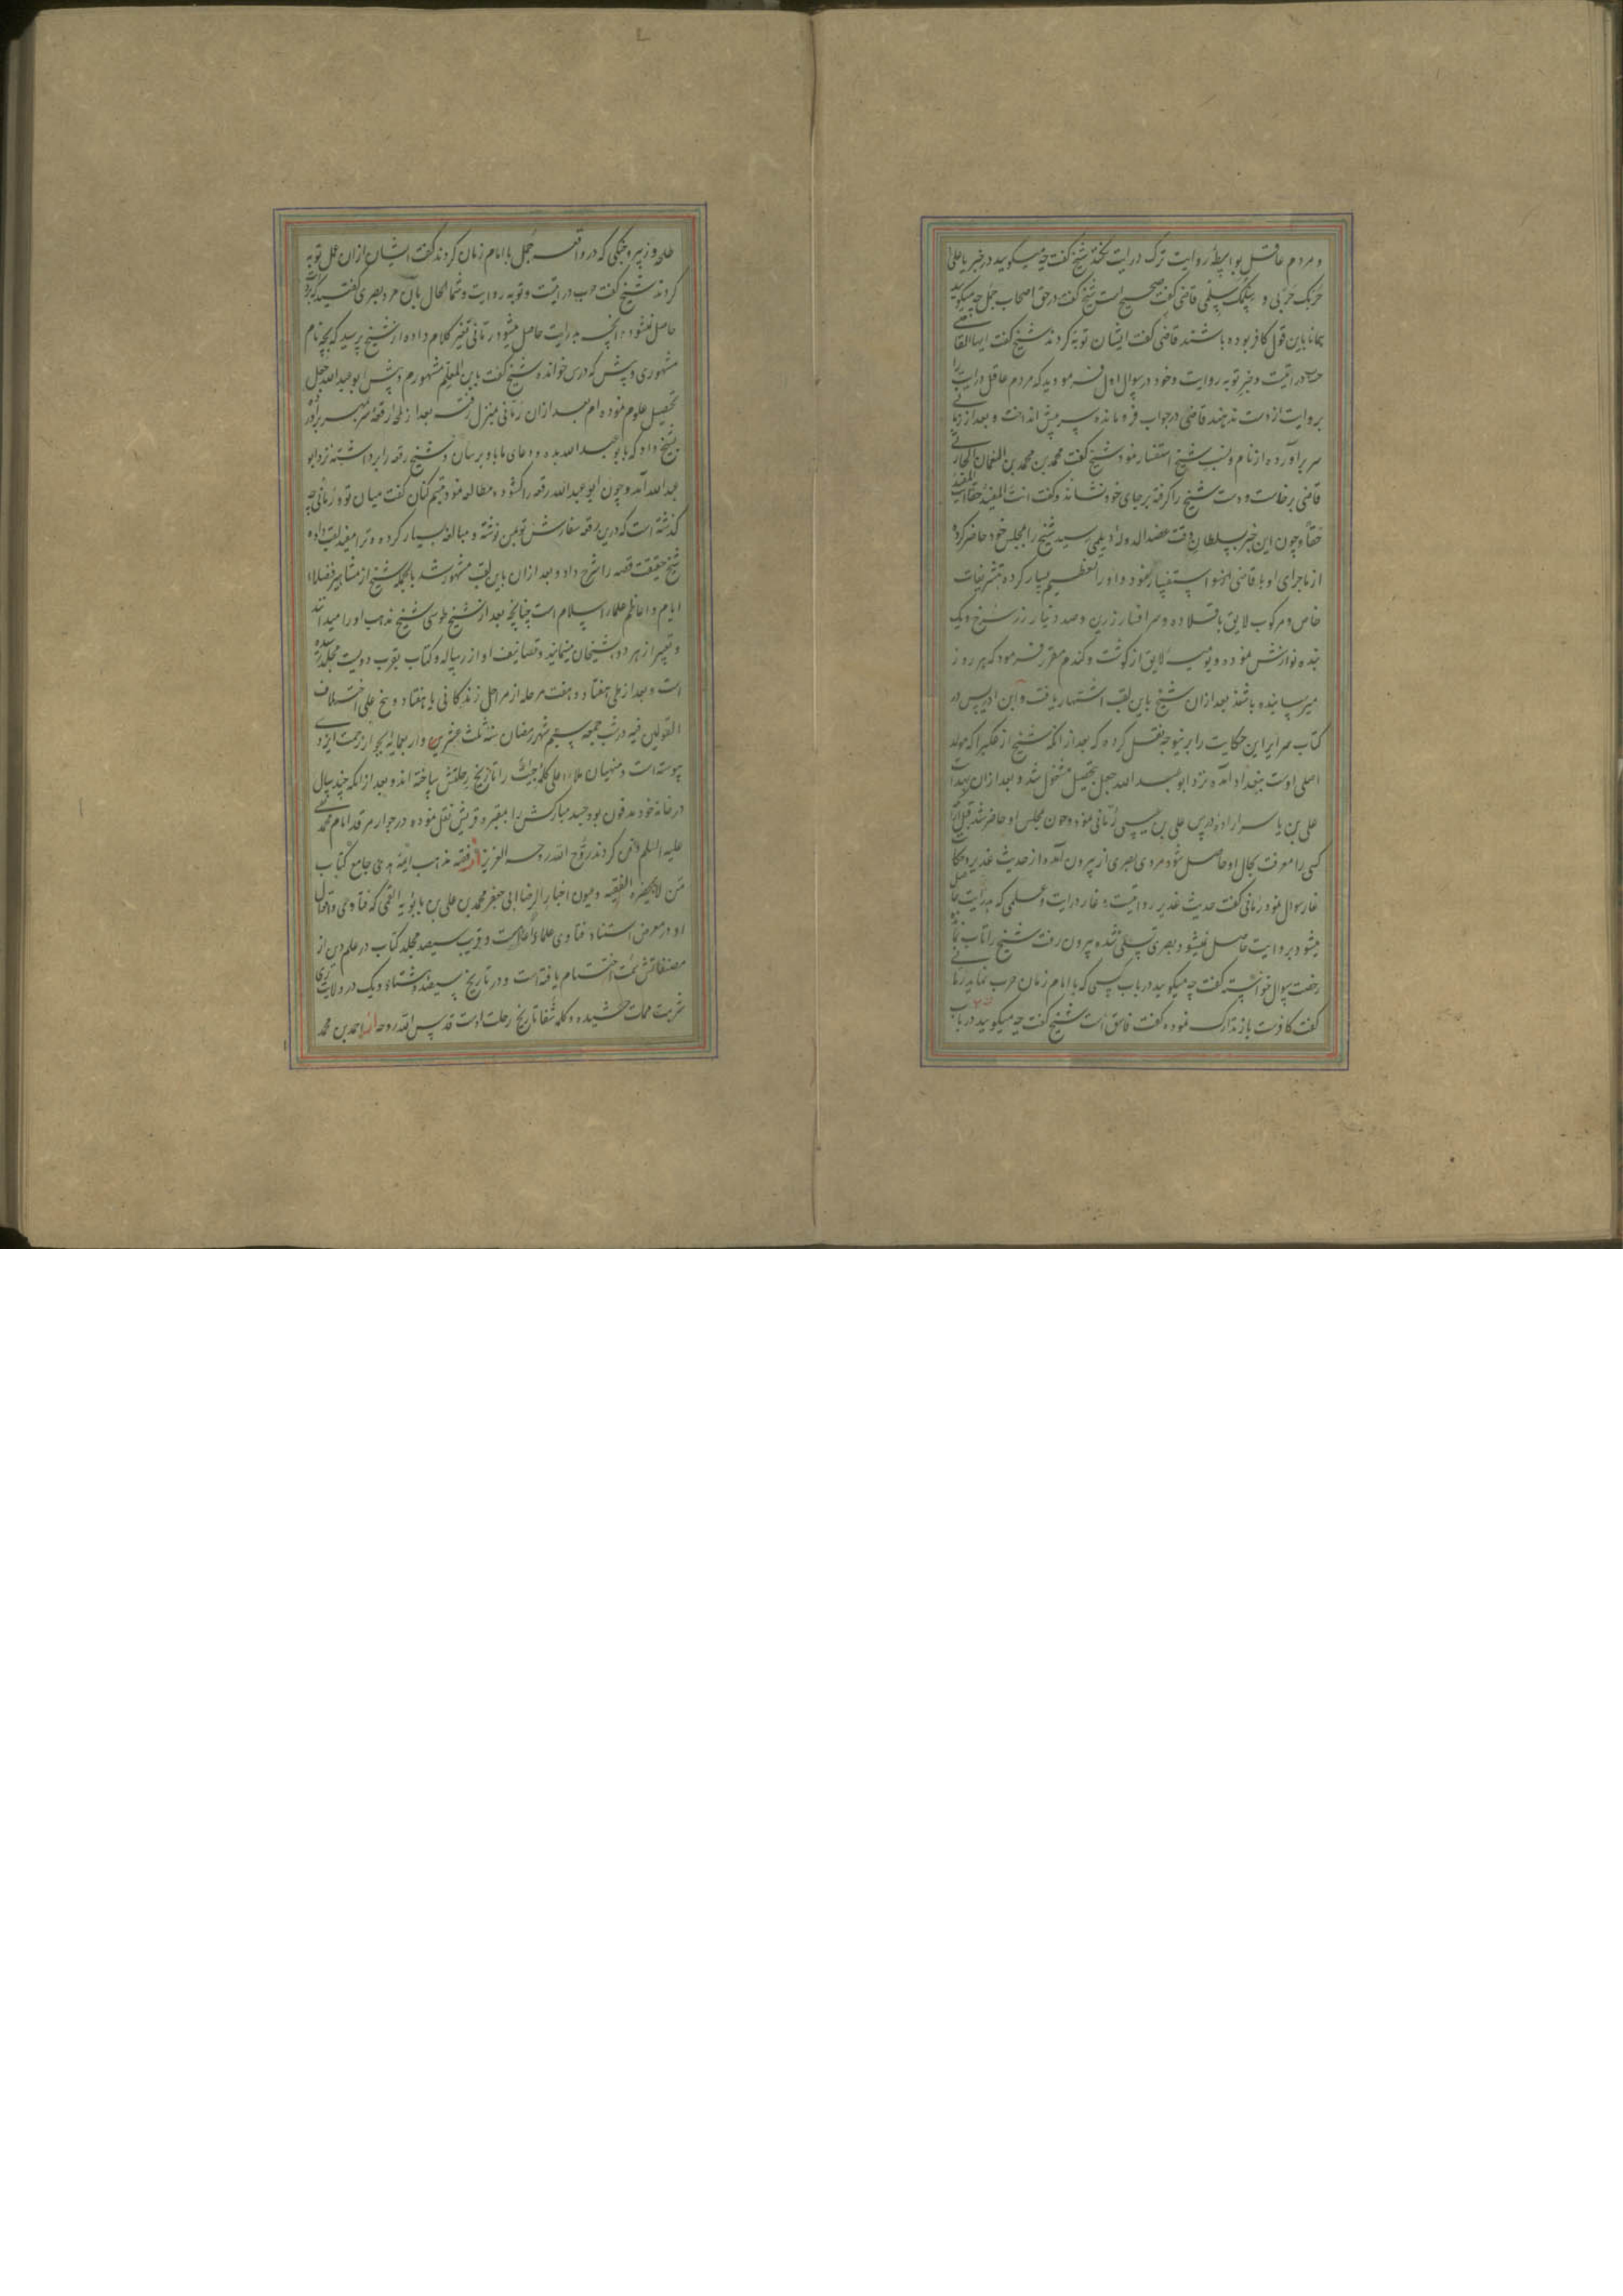 و مردم عاقل بواسطهٔ روایت ترک درایت نکنند شیخ گفت چه میگویید در خبر یا علی
حربک حربی و سلمک سلمی قاضی گفت صحیح است شیخ گفت در حق اصحاب جمل چه میگویید
همانا باین قول کافر بوده باشند قاضی گفت ایشان توبه کردند شیخ گفت ایها القاضی
حرب درایتست و خبر توبه روایت و خود در سوال اول فرمودید که مردم عاقل درایت را
بروایت از دست ندهند قاضی در جواب فرو مانده سر پیش انداخت و بعد از زمانی
سر برآورده از نام و نسب شیخ استفسار نمود شیخ گفت محمد بن محمد بن النعمان الحارثی
قاضی برخاست و دست شیخ را گرفته بر جای خود نشاند و گفت انت المفید حقا انت المفید
حقا و چون این خبر بسلطان وقت عضدالدوله دیلمی رسید شیخ را بمجلس خود حاضر کرده
از ماجرای او با قاضی استفسار نمود و او را تعظیم بسیار کرده بتشریفات
خاص و مرکوب لایق با قلاده و سر افسار زرین و صد دینار زر سرخ و یک
بنده نوازش نموده و یومیه لایق از گوشت و گندم مقرر فرمود که هر روز
میرسانیده باشند بعد از آن شیخ باین لقب اشتهار یافت و ابن ادریس در
کتاب سرایر این حکایت را برینوجه نقل کرده که بعد از آنکه شیخ از عکبرا که مولد
اصلی اوست ببغداد آمده نزد ابو عبد الله جعل بتحصیل مشغول شد و بعد از آن بهدایت
علی بن یاسر اراده درس علی بن عیسی رمانی نمود و چون بمجلس او حاضر شد قبل از آنکه
کسی را معرفت بحال او حاصل شود مردی بصری از بیرون آمده از حدیث غدیر و حکایت
غار سوال نمود رمانی گفت حدیث غدیر روایتست و غار درایت و علمی که بدرایت حاصل
میشود بروایت حاصل نمیشود بصری تسلی شده بیرون رفت شیخ را تاب نمانده
رخصت سوال خواسته گفت چه میگویید در باب کسی که با امام زمان حرب نماید رمانی
گفت کافرست باز تدارک نموده گفت فاسق است شیخ گفت چه میگویید در باب
طلحه و زبیر و جنگی که در واقعه جمل با امام زمان کردند گفت ایشان از ان عمل توبه
کردند شیخ گفت حرب درایتست و توبه روایت و شما الحال بآن مرد بصری گفتید که بروایت
حاصل نمیشود آنچه بدرایت حاصل میشود رمانی تغییر کلام داده از شیخ پرسید که بچه نام
مشهوری و پیش که درس خوانده شیخ گفت بابن المعلم مشهورم و پیش ابو عبدالله جعل
تحصیل علوم نموده ام بعد از ان رمانی بمنزل رفت بعد از لمحه رقعهٔ سر بمهر برآورده
بشیخ داد که بابو عبد الله بده و دعای ما باو برسان و شیخ رقعه را برداشته نزد ابو
عبدالله آمد و چون ابو عبدالله رقعه را گشوده مطالعه نمود تبسم کنان گفت میان تو و رمانی چه
گذشته است که درین رقعه سفارش تو بمن نوشته و مبالغه بسیار کرده و ترا مفید لقب داده
شیخ حقیقت قصه را شرح داد و بعد از ان باین لقب مشهور شد بالجمله شیخ از مشاهیر فضلاء
ایام و اعاظم علماء اسلام است چنانچه بعد از شیخ طوسی شیخ مذهب او را میدانند
و تعبیر از هر دو بشیخان مینمایند و تصانیف او از رساله و کتاب بقرب دویست مجلد رسیده
است و بعد از طی هفتاد و هفت مرحله از مراحل زندگانی یا هفتاد و پنج علی اختلاف
القولین فیه در شب جمعه سیم شهر رمضان سنه ثلث عشرین و اربعمائه بجوار رحمت ایزدی
پیوسته است و منهیان ملاء اعلی کلمهٔ را تاریخ رحلتش ساخته اند و بعد از آنکه چند سال
در خانه خود مدفون بود جسد مبارکش را بمقبره قریش نقل نموده در جوار مرقد امام محمد تقی
علیه السلم دفن کردند روح الله روحه العزیز از فقه مذهب ایمه هدی جامع کتاب
من لا یحضره الفقیه و عیون اخبار الرضا ابی جعفر محمد بن علی بن بابویه القمی که فتاوی و اقوال
او در معرض استناد فتاوی علماء اعلام است و قریب سیصد مجلد کتاب در علم دین از
مصنفاتش سمت اختتام یافته است و در تاریخ سیصد و هشتاد و یک در ولایت ری
شربت ممات چشیده و کلمه شفا تاریخ رحلت اوست قدس الله روحه از احمد بن محمد